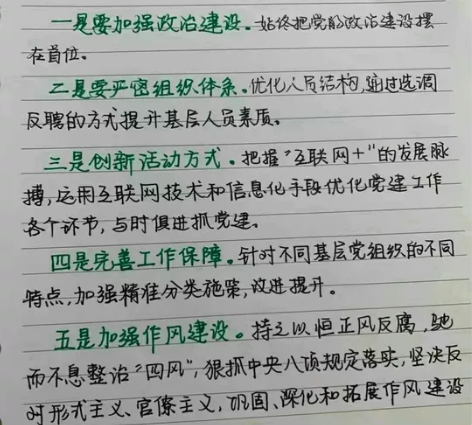 一是要加强政治建设。始终把党的政治建设摆
在首位。
二是要严密组织体系。优化人员结构,通过选调
反聘的方式提升基层人员素质。
三是创新活动方式。把握“互联网+”的发展脉
搏,运用互联网技术和信息化手段优化党建工作
各个环节,与时俱进抓党建。
四是完善工作保障。针对不同基层党组织的不同
特点,加强精准分类施策,改进提升。
五是加强作风建设。持之以恒正风反腐,驰
而不息整治“四风”,狠抓中央八项规定落实,坚决反
对形式主义、官僚主义,巩固、深化和拓展作风建设